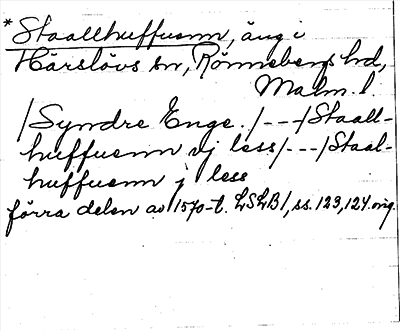 * Staallhuffuenn, äng i
Härslövs sn, Rönnebergs hd,
Malm. l.
/Syndre Enge./---/Staall-
huffuenn vj less/---/Staal-
huffuenn j less
förra delen av 1570-t. LSLB1, ss. 123, 124 orig.